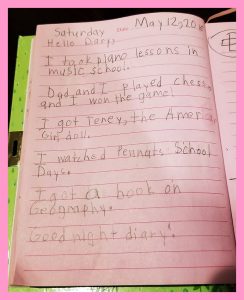 Saturday May 12, 20
Hello Dary,
I took piano lessons in
music school.
Dad and I played chess
and I won the game!
I got Teney, the America
Girl doll.
I watched School
Days.
I got a book on
Geography.
Good night diary!